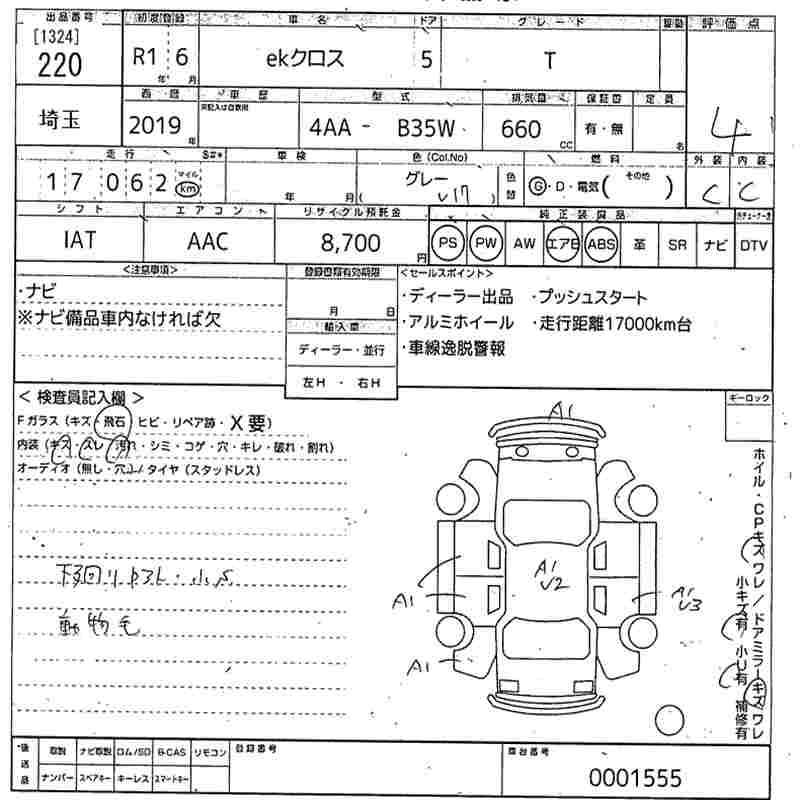 出品番号 初度登録 車名 ドア グレード 駆動 評価点
[1324]
220 R1 6 ekクロス 5 T
年 月
西暦 車歴 型式 排気量 保証書 定員
埼玉 2019 年 未記入は自家用 4AA - B35W 660 CC 有・無 名 4
走行 S#* 車検 色(Col.No) 燃料 外装 内装
17062 マイル km 年 月 グレー ( V17 ) 色替 G・D・電気( その他 ) C C
シフト エアコン リサイクル預託金 純正装備品
IAT AAC 8,700 円 PS PW AW エアB ABS 革 SR ナビ DTV
<注意事項> 登録書類有効期限 <セールスポイント>
・ナビ ・ディーラー出品 ・プッシュスタート
※ナビ備品車内なければ欠 月 日 ・アルミホイール ・走行距離17000km台
輸入車 ・車線逸脱警報
ディーラー・並行
左H ・ 右H
<検査員記入欄> キーロック
Fガラス(キズ・飛石・ヒビ・リペア跡・X要)
内装(キズ・スレ・汚れ・シミ・コゲ・穴・キレ・破れ・割れ)
オーディオ(無し・穴)/タイヤ(スタッドレス)
動物毛
A1
A1
U2
A1
A1
U3
A1
ホイル・CPキズワレ/ドアミラーキズワレ
小キズ有・小U有 補修有
後送品 取説 ナビ取説 ロム/SD B-CAS リモコン 登録番号 車台番号
ナンバー スペアキー キーレス スマートキー 0001555